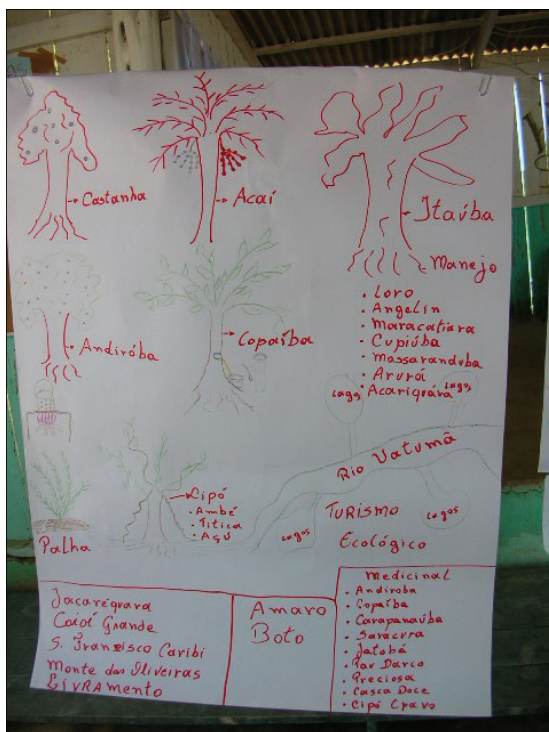 Castanha
Acaí
Itaúba
Manejo
Andiróba
Copaíba
• Loro
• Angelin
• Maracatiara
• Cupiúba
• Massaranduba
• Arurá
• Acariquára
Lagos
Lagos
Rio Uatumã
Lagos
Lagos
Turismo
Ecológico
Cipó
• Ambé
• Titica
• Açú
Palha
Jacarequara
Caioé Grande
S. Francisco Caribi
Monte das Oliveiras
Livramento
Amaro
Boto
Medicinal
• Andiroba
• Copaíba
• Carapanaúba
• Saracura
• Jatobá
• Pav Darco
• Preciosa
• Casca Doce
• Cipó Cravo